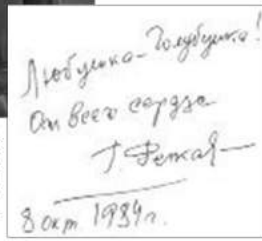 Любушка-Голубушка!
От всего сердца
8 окт 1984г.